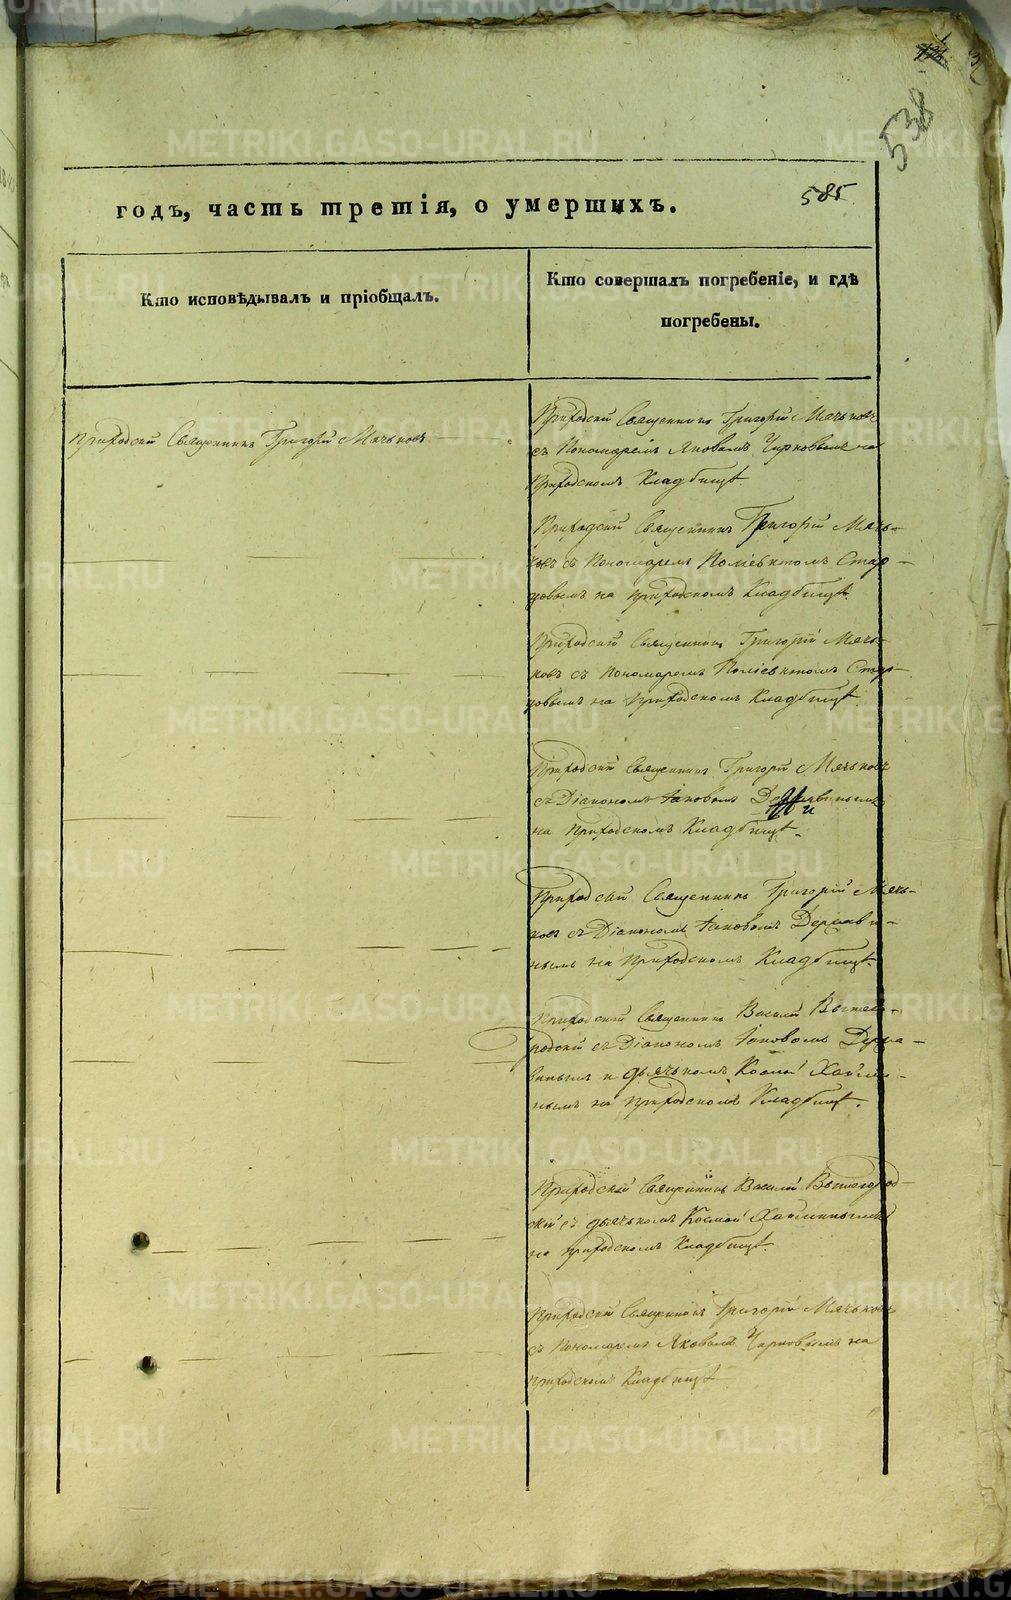 538
585
годъ, часть третія, о умершихъ.
Кто исповѣдывалъ и пріобщалъ.
Кто совершалъ погребеніе, и гдѣ
погребены.
Приходскій Священникъ Григорій Мячьковъ
Приходскій Священникъ Григорій Мячьковъ
съ Пономаремъ Яковомъ Чирковымъ на
Приходскомъ Кладбищѣ.
Приходскій Священникъ Григорій Мячь-
ковъ съ Пономаремъ Поліевктомъ Стар-
цовымъ на приходскомъ Кладбищѣ.
Приходскій Священникъ Григорій Мячь-
ковъ съ Пономаремъ Поліевктомъ Стар-
цовымъ на Приходскомъ Кладбищѣ.
Приходскій Священникъ Григорій Мячьковъ
съ Діакономъ Іаковомъ
на Приходскомъ Кладбищѣ.
Приходскій Священникъ Григорій Мячь-
ковъ съ Діакономъ Іаковомъ Держави-
нымъ на Приходскомъ Кладбищѣ.
Приходскій Священникъ Василій Вытего-
родскій съ Діакономъ Іаковомъ Держа-
винымъ и дьячькомъ Космой
нымъ на Приходскомъ Кладбищѣ.
Приходскій Священникъ Василій Вытегород-
скій съ дьячькомъ Космой
на приходскомъ Кладбищѣ.
Приходскій Священникъ Григорій Мячьковъ
съ Пономаремъ Яковомъ Чирковымъ на
приходскомъ Кладбищѣ
METRIKI.GASO-URAL.RU